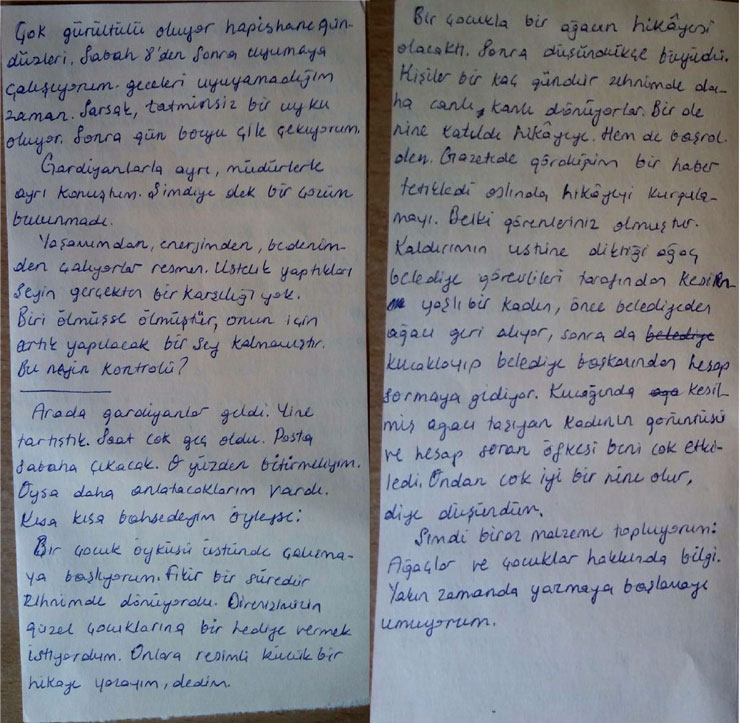 Çok gürültülü oluyor hapishane gün-
düzleri. Sabah 8'den sonra uyumaya
çalışıyorum. geceleri uyuyamadığım
zaman. Sarsak, tatminsiz bir uyku
oluyor. Sonra gün boyu çile çekiyorum.
Gardiyanlarla ayrı, müdürlerle
ayrı konuştum. Şimdiye dek bir çözüm
bulunmadı.
Yaşamımdan, enerjimden, bedenim-
den çalıyorlar resmen. Üstelik yaptıkları
şeyin gerçekten bir karşılığı yok.
Biri ölmüşse ölmüştür, onun için
artık yapılacak bir şey kalmamıştır.
Bu neyin kontrolü?
Arada gardiyanlar geldi. Yine
tartıştık. Saat çok geç oldu. Posta
sabaha çıkacak. O yüzden bitirmeliyim.
Oysa daha anlatacaklarım vardı.
Kısa kısa bahsedeyim öyleyse:
Bir çocuk öyküsü üstünde çalışma-
ya başlıyorum. Fikir bir süredir
zihnimde dönüyordu. Direnişimizin
güzel çocuklarına bir hediye vermek
istiyordum. Onlara resimli küçük bir
hikaye yazayım, dedim.
Bir çocukla bir ağacın hikâyesi
olacaktı. Sonra düşündükçe büyüdü.
Kişiler bir kaç gündür zihnimde da-
ha canlı, kanlı dönüyorlar. Bir de
nine katıldı hikâyeye. Hem de başrol-
den. Gazetede gördüğüm bir haber
tetikledi aslında hikâyeyi kurgula-
mayı. Belki görenleriniz olmuştur.
Kaldırımın üstüne diktiği ağaç
belediye görevlileri tarafından kesilen
yaşlı bir kadın, önce belediyeden
ağacı geri alıyor, sonra da belediye
kucaklayıp belediye başkanından hesap
sormaya gidiyor. Kucağında aga kesil-
miş ağacı taşıyan kadının görüntüsü
ve hesap soran öfkesi beni çok etki-
ledi. Ondan çok iyi bir nine olur,
diye düşündüm.
Şimdi biraz malzeme topluyorum:
Ağaçlar ve çocuklar hakkında bilgi.
Yakın zamanda yazmaya başlamayı
umuyorum.